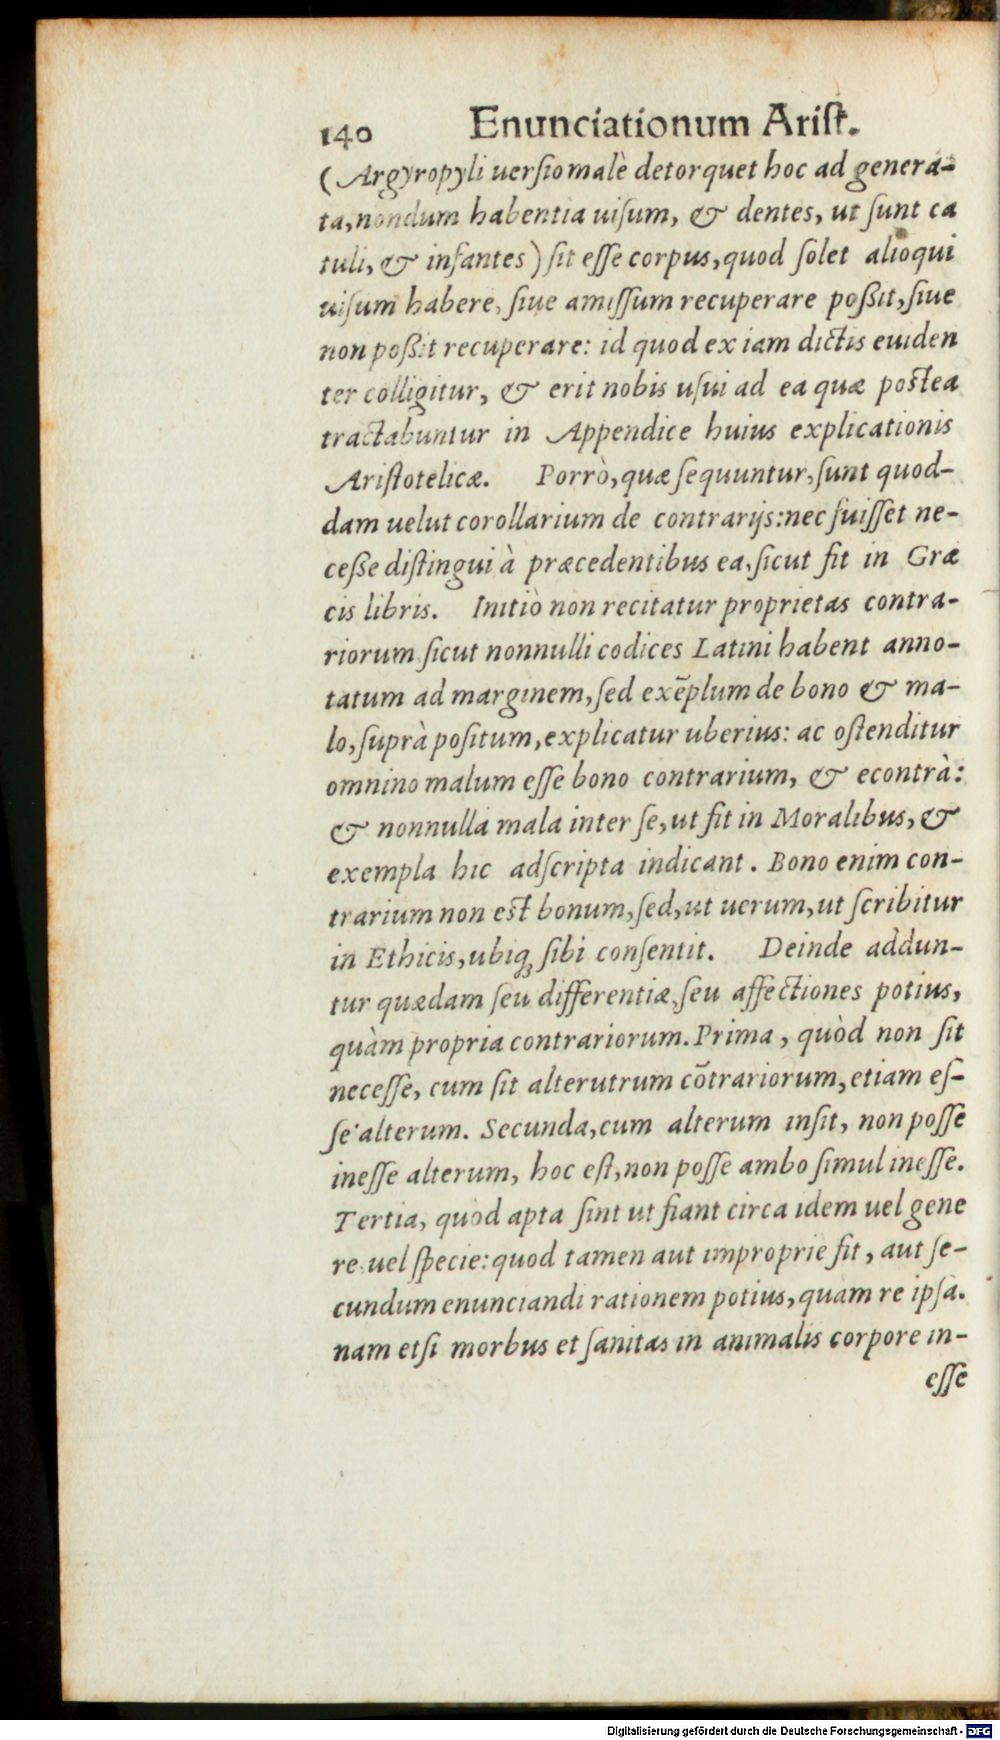 140 Enunciationum Arist.
(Argyropyli uersio malè detorquet hoc ad genera-
ta, nondum habentia uisum, & dentes, ut sunt ca
tuli, & infantes) sit esse corpus, quod solet alioqui
uisum habere, siue amissum recuperare poßit, siue
non poßit recuperare: id quod ex iam dictis euiden
ter colligitur, & erit nobis usui ad ea quæ postea
tractabuntur in Appendice huius explicationis
Aristotelicæ. Porrò, quæ sequuntur, sunt quod-
dam uelut corollarium de contrarijs: nec fuisset ne-
ceße distingui à præcedentibus ea, sicut fit in Græ
cis libris. Initiò non recitatur proprietas contra-
riorum sicut nonnulli codices Latini habent anno-
tatum ad marginem, sed exẽplum de bono & ma-
lo, suprà positum, explicatur uberius: ac ostenditur
omnino malum esse bono contrarium, & econtrà:
& nonnulla mala inter se, ut fit in Moralibus, &
exempla hic adscripta indicant. Bono enim con-
trarium non est bonum, sed, ut uerum, ut scribitur
in Ethicis, ubiq; sibi consentit. Deinde addun-
tur quædam seu differentiæ, seu affectiones potius,
quàm propria contrariorum. Prima, quòd non sit
necesse, cum sit alterutrum cõtrariorum, etiam es-
se alterum. Secunda, cum alterum insit, non posse
inesse alterum, hoc est, non posse ambo simul inesse.
Tertia, quòd apta sint ut fiant circa idem uel gene
re uel specie: quod tamen aut improprie fit, aut se-
cundum enunciandi rationem potius, quàm re ipsa.
nam etsi morbus et sanitas in animalis corpore in-
esse
Digitalisierung gefördert durch die Deutsche Forschungsgemeinschaft - DFG